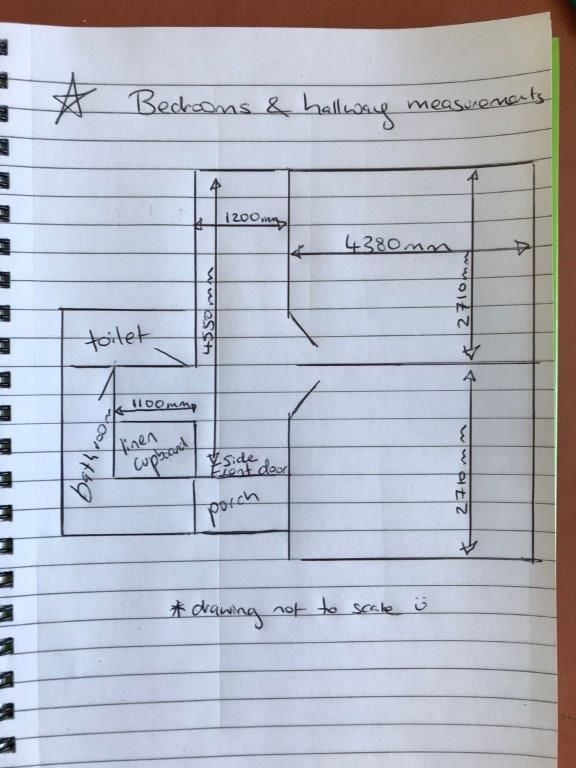 Bedrooms & hallway measurements
1200mm
4380mm
4550mm
2710mm
toilet
1100mm
bathroom
linen
cupboard
side
front door
porch
2710mm
*drawing not to scale ☺